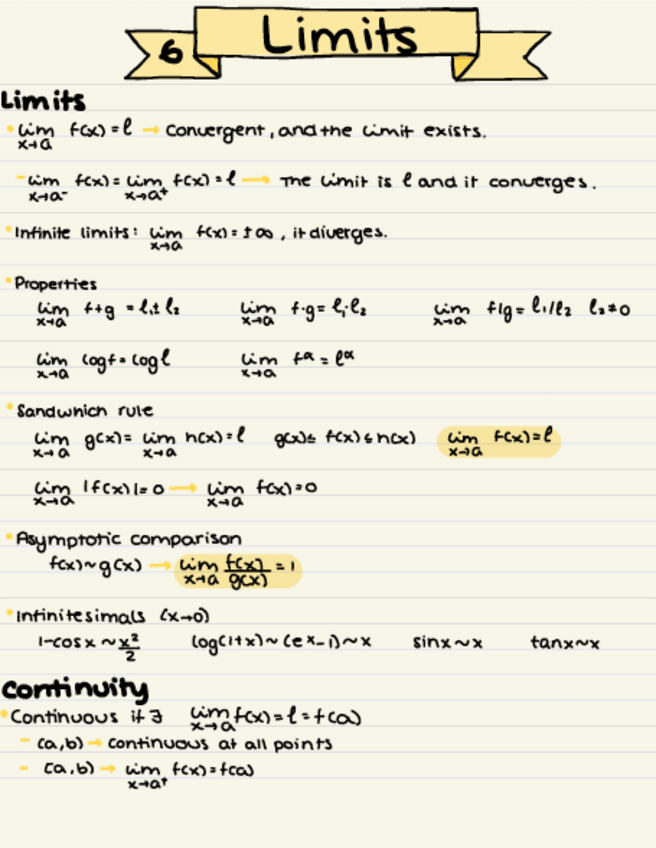 6 Limits
Limits
• lim x→a f(x) = l → Convergent, and the limit exists.
- lim x→a⁻ f(x) = lim x→a⁺ f(x) = l → The limit is l and it converges.
• Infinite limits: lim x→a f(x) = ±∞, it diverges.
• Properties
lim x→a f+g = l₁±l₂ lim x→a f·g = l₁·l₂ lim x→a f/g = l₁/l₂ l₂≠0
lim x→a logf = logl lim x→a fᵅ = lᵅ
• Sandwhich rule
lim x→a g(x) = lim x→a h(x) = l g(x) ≤ f(x) ≤ h(x) lim x→a f(x) = l
lim x→a |f(x)| = 0 → lim x→a f(x) = 0
• Asymptotic comparison
f(x) ~ g(x) → lim x→a f(x)/g(x) = 1
• Infinitesimals (x→0)
1-cosx ~ x²/2 log(1+x) ~ (eˣ-1) ~ x sinx ~ x tanx ~ x
Continuity
• Continuous if ∃ lim x→a f(x) = l = f(a)
- (a,b) → continuous at all points
- [a,b) → lim x→a⁺ f(x) = f(a)